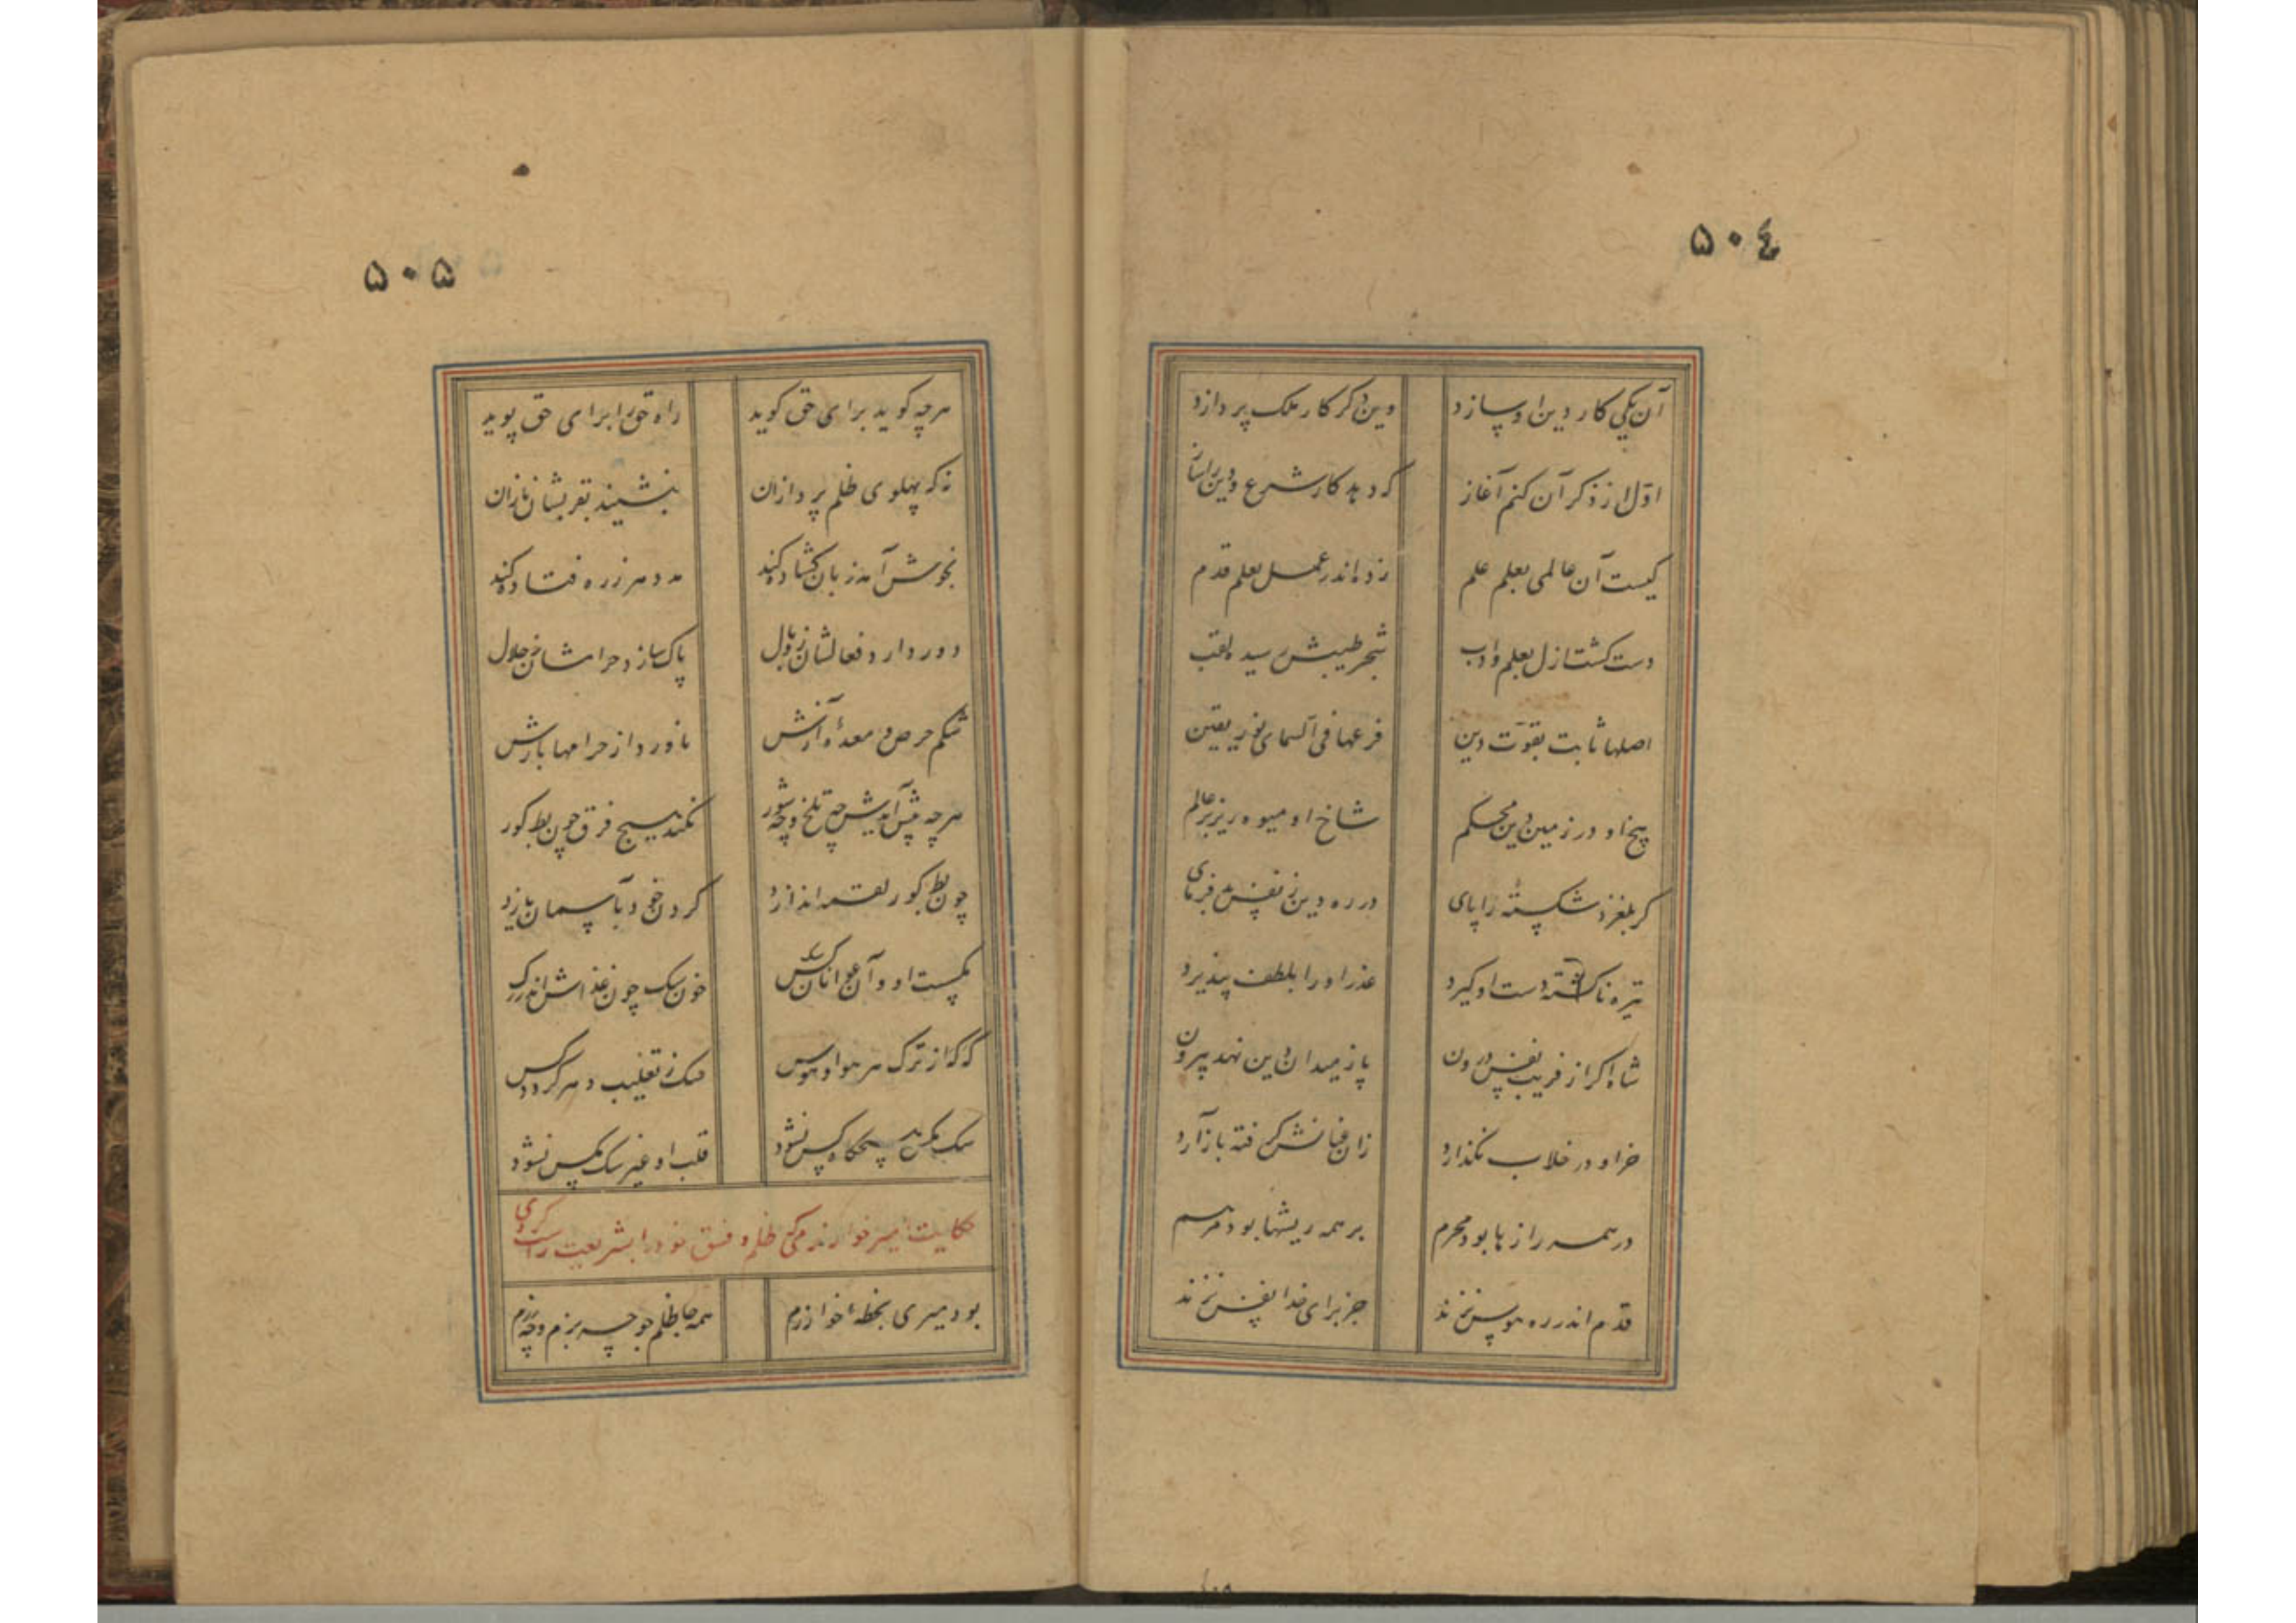 ۵۰۴
آن یکی کار دین او سازد وین دگر کار ملک پردازد
اول از ذکر آن کنم آغاز که دهد کار شرع و دین را ساز
کیست آن عالمی بعلم علم زده اندر عمل بعلم قدم
دست کشت ازل بعلم و ادب شجر طیبش رسیده لقب
اصلها ثابت بقوت دین فرعها فی السمای نور یقین
بیخ او در زمین دین محکم شاخ او میوه ریز بر عالم
گر بلغزد شکسته را پای در ره دین ز نفس بد فرمای
تیره ناگشته دست او گیرد عذر او را بلطف بپذیرد
شاه اگر از فریب نفس درون پا ز میدان دین نهد بیرون
زان عنانش گرفته باز آرد
خر او در خلاب نگذارد
در همه رازها بود محرم بر همه ریشها بود مرهم
قدم اندر ره هوس نزند جز برای خدا نفس نزند
۵۰۵
هرچه گوید برای حق گوید راه حق را برای حق پوید
نه که پهلوی ظلم پردازان بنشیند بقربشان نازان
بخوش آمد زبان گشاده کند مدد هر ز ره فتاده کند
دور دارد فعالشان ز وبال پاک سازد حرامشان ز حلال
شکم حرص و معدهٔ آزش ناورد از حرامها بازش
هرچه پیش آیدش چه تلخ و چه شور نکند هیچ فرق چون بط کور
چون بط کور لقمه اندازد گردن خود بآسمان یازد
کیست او و آن عوانان سگ خون سگ چون غذاش اندر رگ
که گر از ترک هر هوا و هوس مسک ز تقلیب دهر گردد مس
سگ مگس هیچگاه پس نشود قلب او غیر سگ مگس نشود
حکایت امیر خوارزم که ظلم و فسق خود را بشریعت راست کردی
بود میری بخطهٔ خوارزم همه جا ظلم جو چه بزم و چه رزم